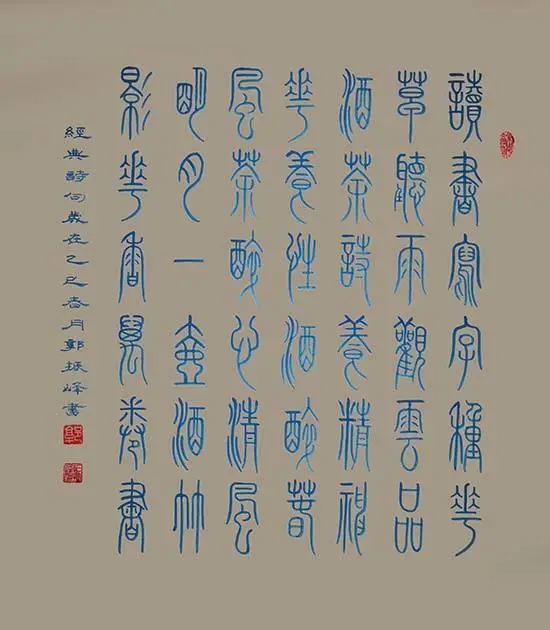 讀書寫字種花
草聽雨觀雲品
酒茶詩養精神
花養性酒醉春
風茶醉心清風
明月一壺酒竹
影花香萬卷書
經典詩句歲在乙巳春月郭振峰書